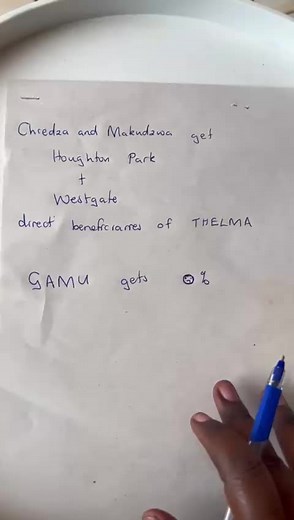 Chiedza and Makudzwa get
Houghton Park
+
Westgate
direct beneficiaries of THELMA
GAMU gets 0%